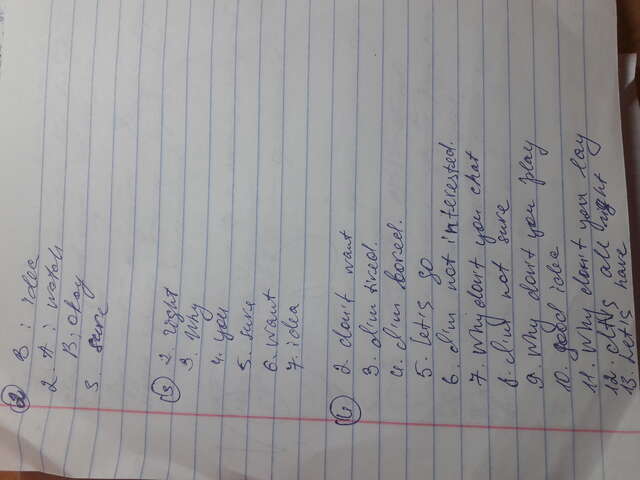 2 B: idea
2. A: watch
B: okay
3. sure
3 2. right
3. Why
4. you
5. sure
6. want
7. idea
4 2. don't want
3. I'm tired.
4. I'm bored.
5. Let's go
6. I'm not interested.
7. Why don't you chat
8. I'm not sure
9. Why don't you play
10. good idea
11. Why don't you lay
12. It's all right
13. Let's have